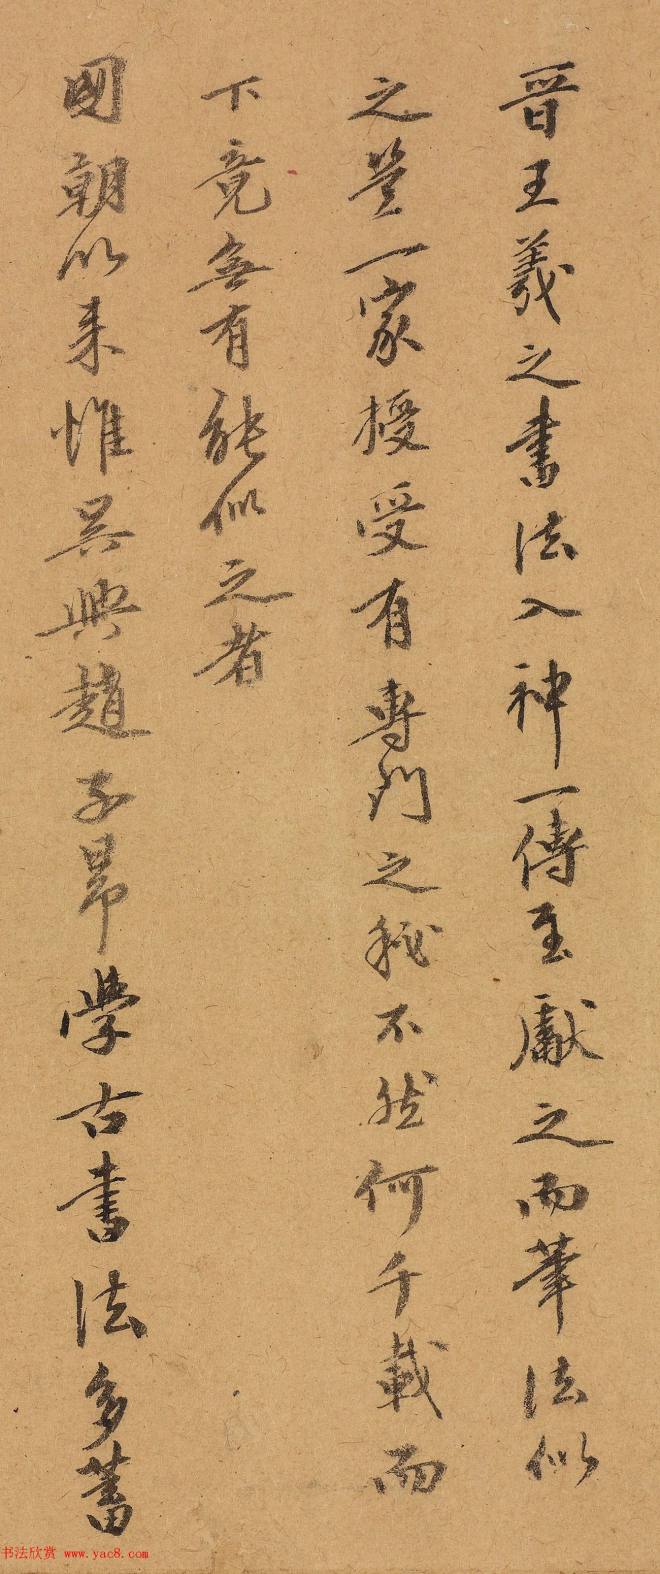 晉王羲之書法入神一傳至獻之而筆法似
之豈一家授受有專門之秘不然何千載而
下竟無有能似之者
國朝以来惟吳興趙子昂學古書法多蓄
书法欣赏 www.yac8.com